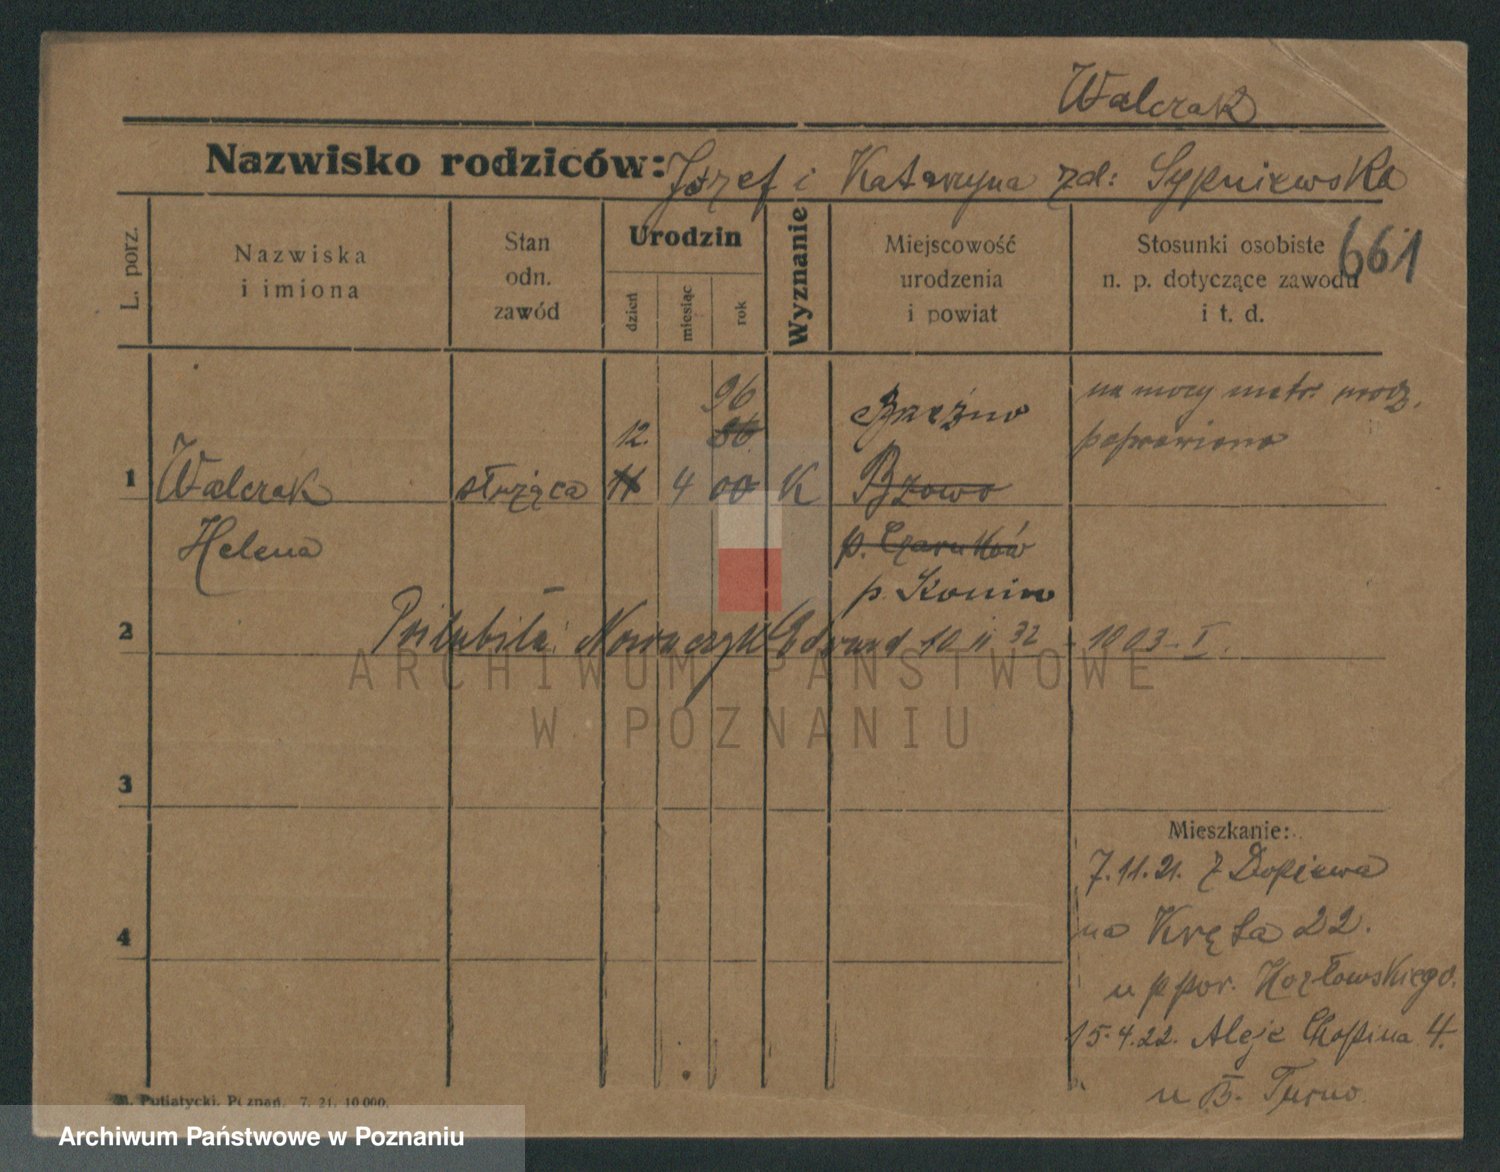 Walczak
Nazwisko rodziców: Józef i Katarzyna zd: Sypniewska
661
L. porz.
Nazwiska
i imiona
Stan
odn.
zawód
Urodzin
dzień
miesiąc
rok
Wyznanie
Miejscowość
urodzenia
i powiat
Stosunki osobiste
n. p. dotyczące zawodu
i t. d.
1
Walczak
Helena
służąca
12.
11
4
96
86
00
K
Brzeźno
Bzowo
p. Czarnków
p. Konin
na mocy metr. urodz.
poprawiono
2
Poślubiła: Nowaczyk Edward 10 II 32 - 1003-I.
3
4
Mieszkanie:
7.11.21. z Dopiewa
na Kręta 22.
u ppor. Kozłowskiego.
15.4.22. Aleje Chopina 4.
u B. Turno
M. Putiatycki, Poznań. 7. 21. 10 000.
ARCHIWUM PAŃSTWOWE
W POZNANIU
Archiwum Państwowe w Poznaniu